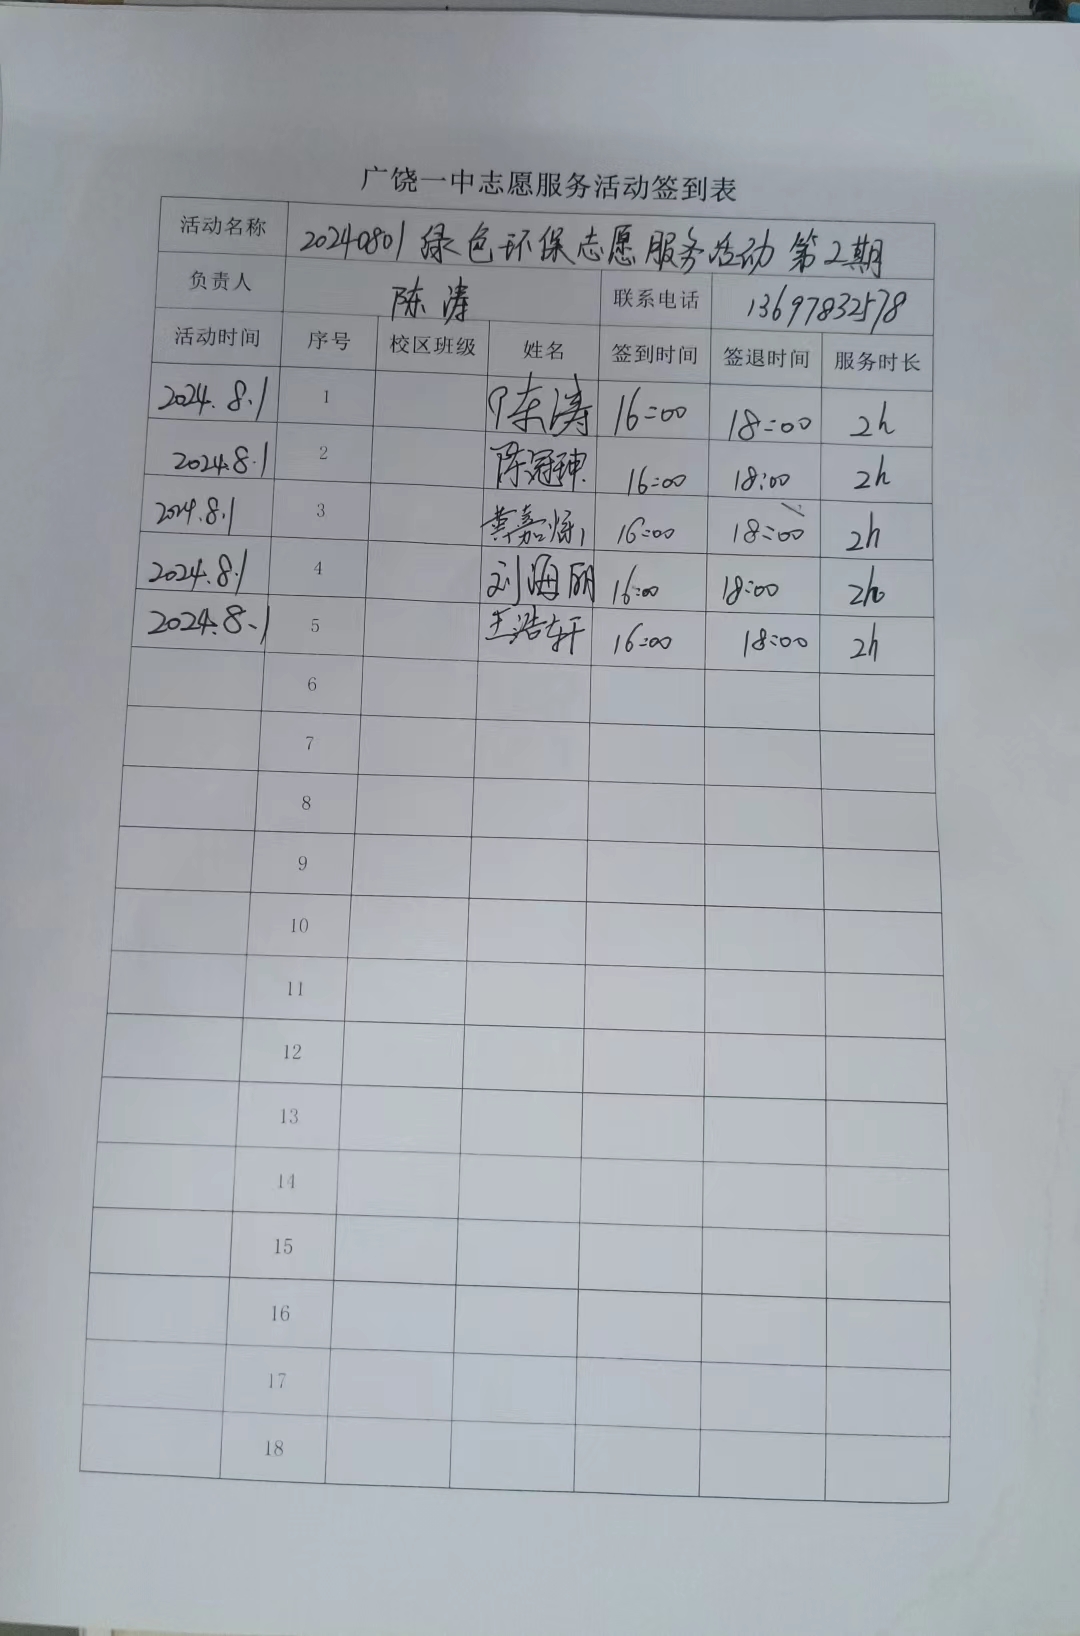 广饶一中志愿服务活动签到表
活动名称 20240801绿色环保志愿服务活动第2期
负责人 陈涛 联系电话 13697832578
活动时间 序号 校区班级 姓名 签到时间 签退时间 服务时长
2024.8.1 1 陈涛 16:00 18:00 2h
2024.8.1 2 16:00 18:00 2h
2024.8.1 3 16:00 18:00 2h
2024.8.1 4 刘海丽 16:00 18:00 2h
2024.8.1 5 王浩轩 16:00 18:00 2h
6
7
8
9
10
11
12
13
14
15
16
17
18